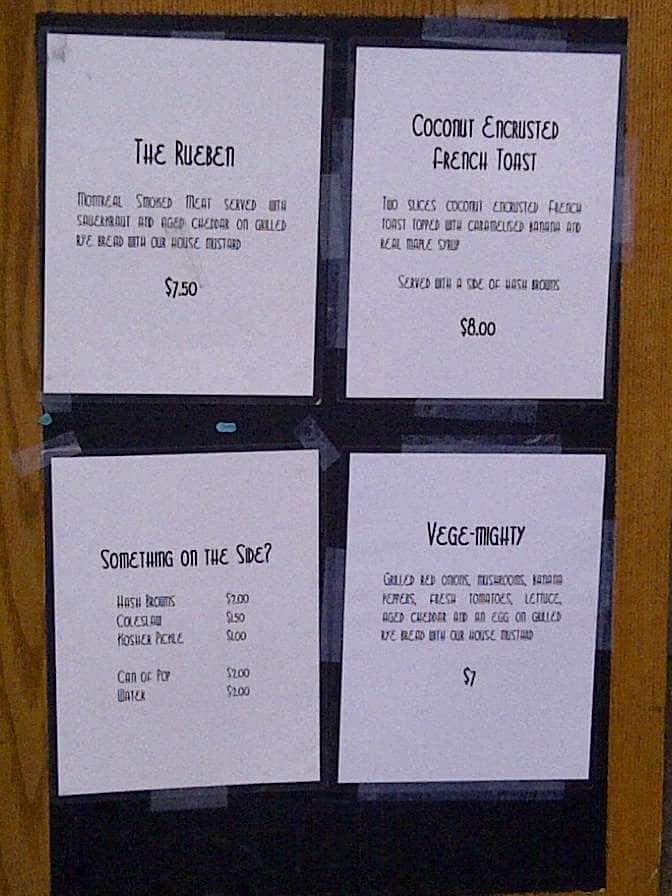 The Rueben
Montreal Smoked Meat served with
sauerkraut and aged cheddar on grilled
rye bread with our house mustard
$7.50
Coconut Encrusted
French Toast
Two slices coconut encrusted French
toast topped with caramelised banana and
real maple syrup
Served with a side of hash browns
$8.00
Something on the Side?
Hash Browns $2.00
Coleslaw $1.50
Kosher Pickle $1.00
Can of Pop $2.00
Water $2.00
Vege-mighty
Grilled red onions, mushrooms, banana
peppers, fresh tomatoes, lettuce,
aged cheddar and an egg on grilled
rye bread with our house mustard
$7